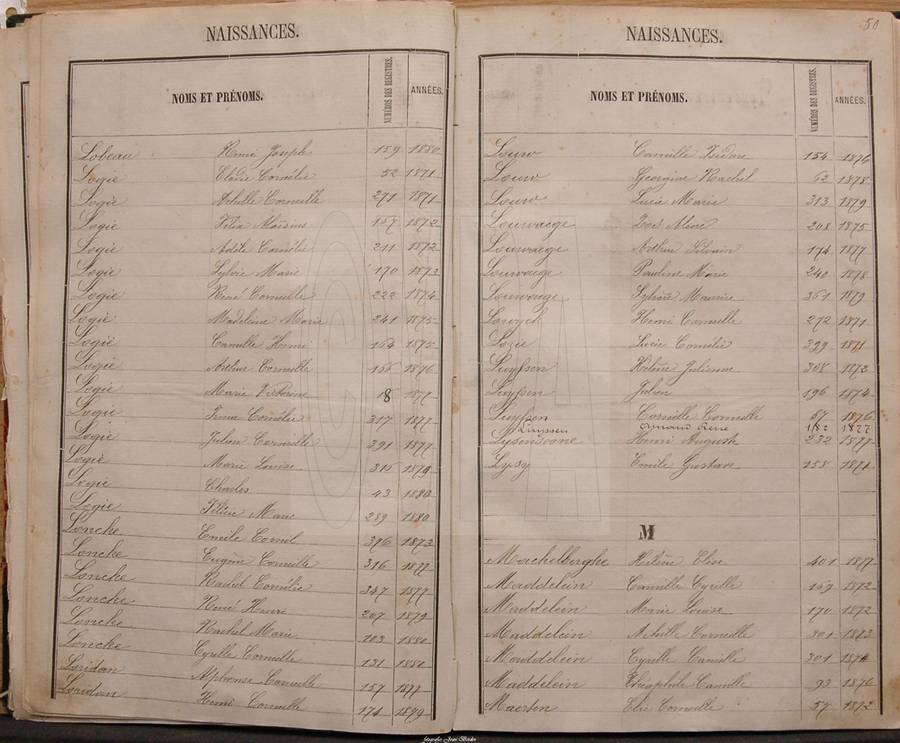 NAISSANCES.
NOMS ET PRÉNOMS. NUMÉROS DES REGISTRES. ANNÉES.
Lobeau Remi Joseph 159 1880
Logie Elodie Cornélie 52 1871
Logie Achille Corneille 271 1871
Logie 167 1872
Logie Cornélie 211 1872
Logie Sylvie Marie 170 1873
Logie René Corneille 222 1874
Logie Madeleine Marie 241 1875
Logie Camille Henri 164 1875
Logie Arthur Corneille 156 1876
Logie Marie Victorine 18 1877
Logie Irma Cornélie 317 1877
Logie Julien Corneille 391 1877
Logie Marie Louise 315 1879
Logie Charles 43 1880
Logie Marie 289 1880
Loncke Emile Cornil 396 1873
Loncke Eugène Corneille 316 1877
Loncke Rachel Cornélie 347 1877
Loncke René Henri 207 1879
Loncke Rachel Marie 203 1880
Loncke Cyrille Corneille 131 1880
Loridan Alphonse Corneille 157 1877
Loridan Henri Corneille 174 1879
50
NAISSANCES.
NOMS ET PRÉNOMS. NUMÉROS DES REGISTRES. ANNÉES.
Louw Camille Isidore 154 1876
Louw Georgine Rachel 63 1878
Louw Lucie Marie 313 1879
Louwaege 208 1875
Louwaege Arthur Silvain 174 1877
Louwaege Pauline Marie 240 1878
Louwaege Maurice 361 1879
Lowyck Henri Camille 272 1871
Lucie Cornélie 399 1871
Luyssen Hélène Julienne 308 1872
Luyssen Julien 196 1874
Luyssen Corneille Corneille 57 1876
Luyssen Armand René 182 1877
Henri Auguste 232 1877
Lysy Emile Gustave 158 1871
M
Machelberghe Hélène Elise 401 1877
Maddelein Camille Cyrille 169 1872
Maddelein Marie Louise 170 1872
Maddelein Achille Corneille 301 1873
Maddelein Cyrille Camille 301 1874
Maddelein Théophile Camille 93 1876
Maerten Elie Corneille 57 1872